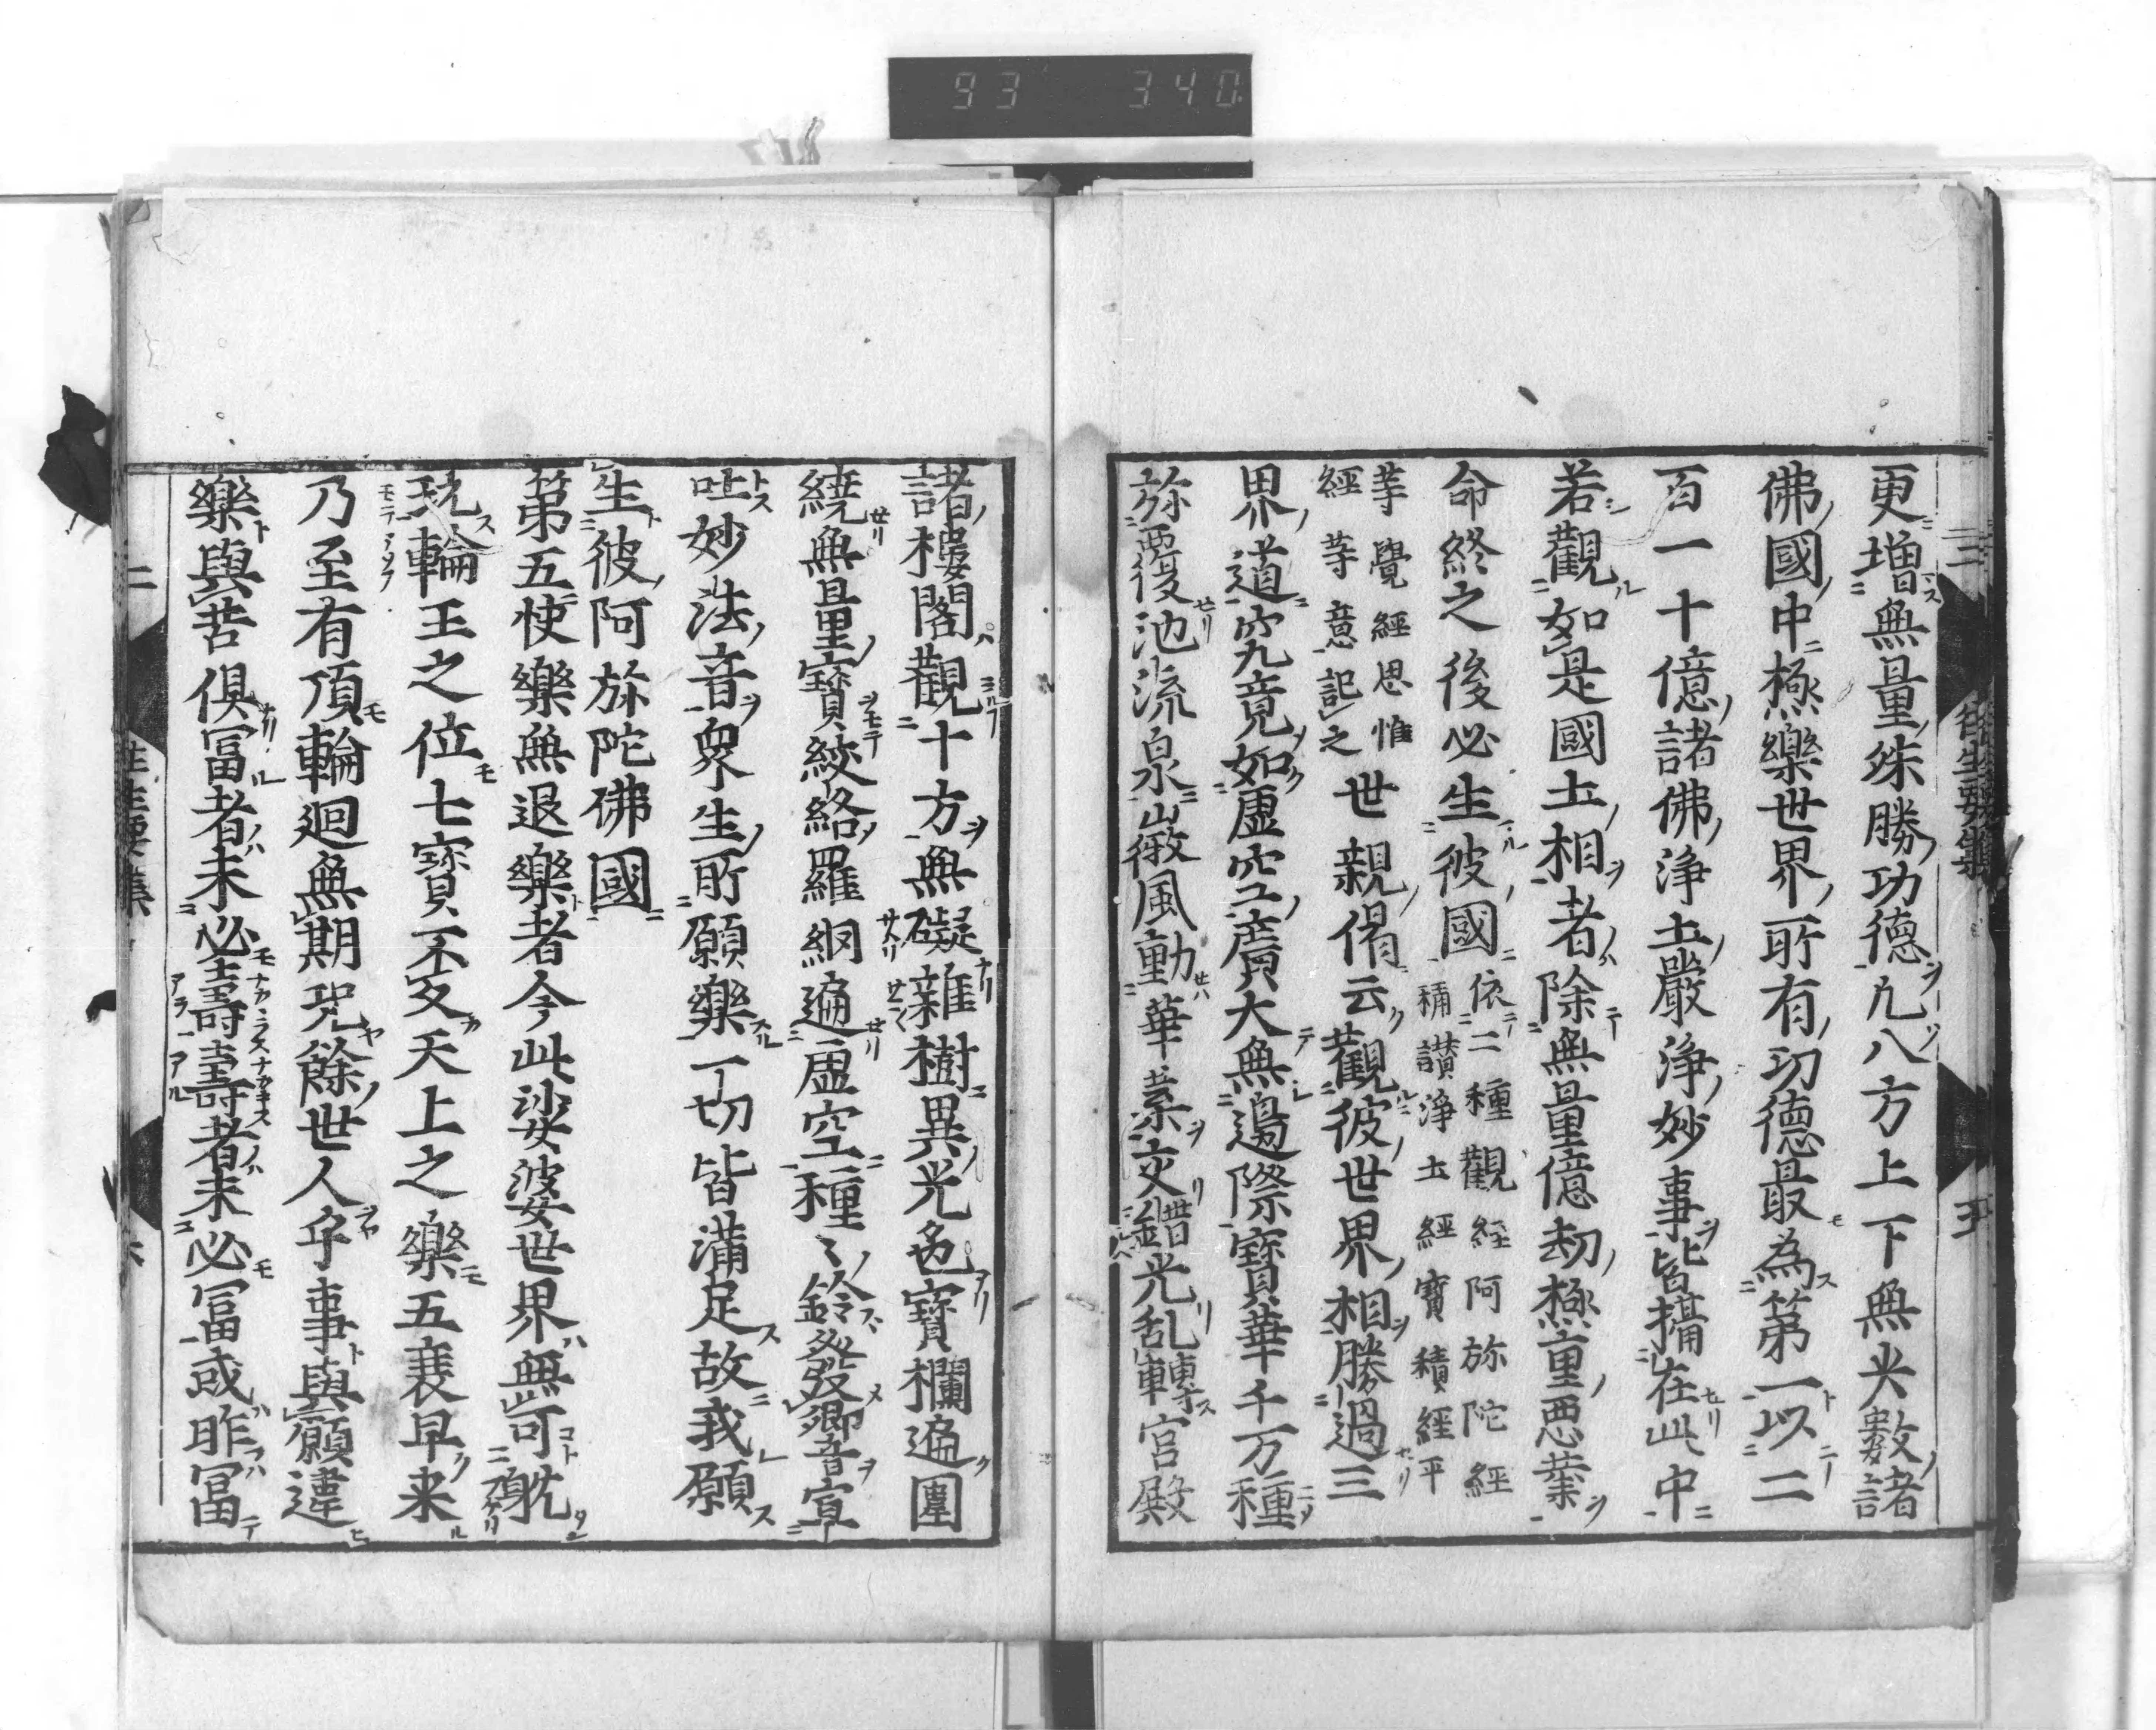 93 340
更増無量殊勝功徳凡八方上下無央數諸
佛國中極樂世界所有功徳最為第一以二
百一十億諸佛浄土嚴浄妙事皆攝在此中
若觀如是國土相者除無量億劫極重悪業
命終之後必生彼國依二種觀経阿弥陀経
稱讃浄土経寳積経平
等覺経思惟
経等意記之世親偈云觀彼世界相勝過三
界道究竟如虚空廣大無邊際寳華千万種
弥覆池流泉微風動華葉交錯光乱轉宮殿
諸樓閣觀十方無礙雜樹異光色寳欄遍圍
繞無量寳絞絡羅網遍虚空種〻鈴發響宣
吐妙法音衆生所願樂一切皆滿足故我願
生彼阿弥陀佛國
第五快樂無退樂者今此娑婆世界無可躭
玩輪王之位七寳不久天上之樂五衰早来
乃至有頂輪廻無期况餘世人乎事與願違
樂與苦倶冨者未必壽壽者未必冨或昨冨
往生要集